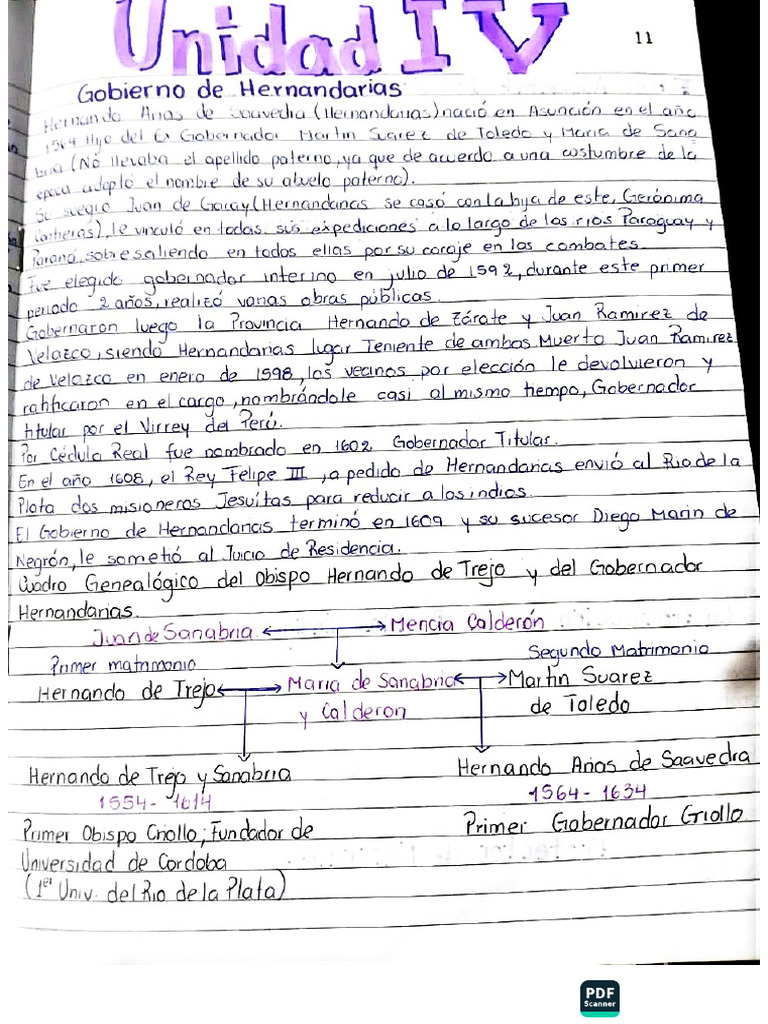 Unidad IV
11
Gobierno de Hernandarias
Hernando Arias de Saavedra (Hernandarias) nació en Asunción en el año
1564 Hijo del Ex Gobernador Martín Suarez de Toledo y María de Sana
bria (No llevaba el apellido paterno, ya que de acuerdo a una costumbre de la
época adoptó el nombre de su abuelo paterno).
Su suegro Juan de Garay (Hernandarias se casó con la hija de este, Gerónima
Contreras), le vinculó en todas sus expediciones a lo largo de los rios Paraguay y
Paraná, sobresaliendo en todos ellas por su coraje en los combates.
Fue elegido gobernador interino en julio de 1592, durante este primer
periodo 2 años, realizó varias obras públicas.
Gobernaron luego la Provincia Hernando de Zárate y Juan Ramirez de
Velazco, siendo Hernandarias lugar Teniente de ambas Muerto Juan Ramirez
de Velazco en enero de 1598, los vecinos por elección le devolvieron y
ratificaron en el cargo, nombrándole casi al mismo tiempo, Gobernador
titular por el Virrey del Perú.
Por Cédula Real fue nombrado en 1602 Gobernador Titular.
En el año 1608, el Rey Felipe III, a pedido de Hernandarias envió al Rio de la
Plata dos misioneros Jesuítas para reducir a los indios.
El Gobierno de Hernandarias terminó en 1609 y su sucesor Diego Marin de
Negrón, le sometió al Juicio de Residencia.
Cuadro Genealógico del Obispo Hernando de Trejo y del Gobernador
Hernandarias.
Juan de Sanabria Mencia Calderón
Primer matrimonio Segundo Matrimonio
Hernando de Trejo Maria de Sanabria Martin Suarez
y Calderon de Toledo
Hernando de Trejo y Sanabria Hernando Arias de Saavedra
1554 - 1614 1564 - 1634
Primer Obispo Criollo; Fundador de Primer Gobernador Criollo
Universidad de Cordoba
(1er Univ. del Rio de la Plata)
PDF
Scanner